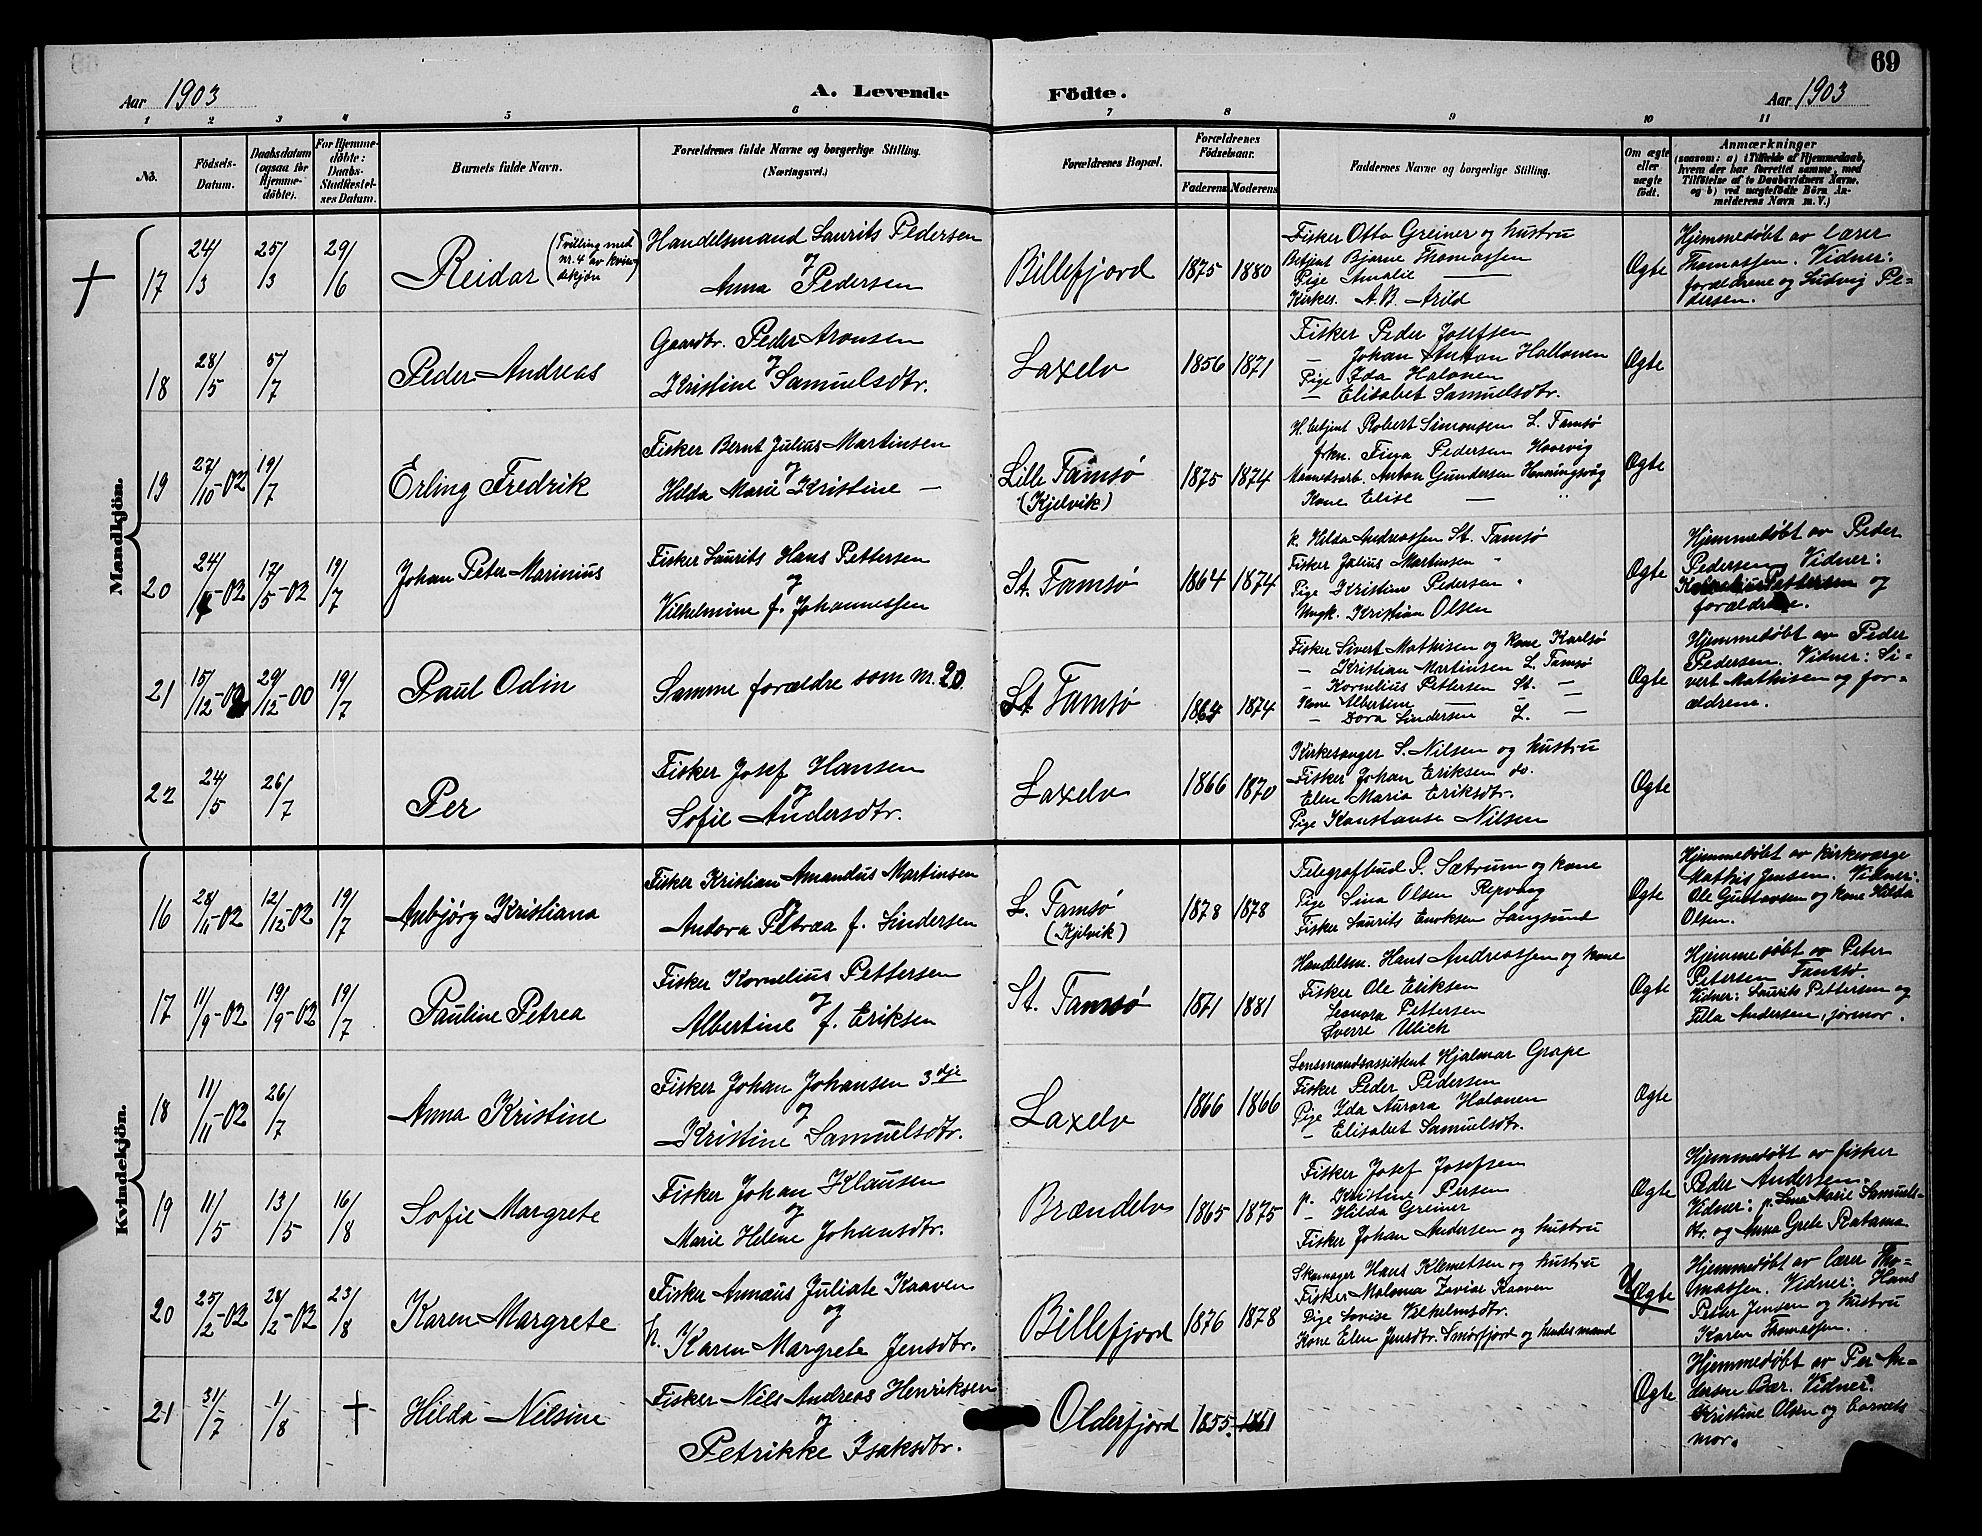 69
Aar 1903 A. Levende Födte. Aar 1903
1 2 3 4 5 6 7 8 9 10 11
No.
Födsels-
Datum.
Daabsdatum
(ogsaa for
Hjemme-
döbte).
For Hjemme-
döbte:
Daabs-
Stadfæstel-
ses Datum.
Barnets fulde Navn.
Forældrenes fulde Navne og borgerlige Stilling.
(Næringsvei.)
Forældrenes Bopæl.
Forældrenes
Födselsaar.
Faderens Moderens
Faddernes Navne og borgerlige Stilling.
Om ægte
eller
uægte
født.
Anmærkninger
(saasom: a) i Tilfælde af Hjemmedaab,
hvem der har forrettet samme, med
Tilföielse af to Daabsvidners Navne,
og b) ved uægtefödte Börn An-
melderens Navn m. V.)
Mandkjön.
17
24/3
25/3
29/6
Reidar (Tvilling med
nr. 4 av kvin-
dekjøn)
Handelsmand Laurits Pedersen
og
Anna Pedersen
Billefjord
1875 1880
Fisker Otto Greiner og hustru
Betjent Bjarne Thomassen
Pige Amalie —
Kirkes. A. B. Arild
Ægte
Hjemmedøbt av lærer
Thomassen. Vidner:
forældrene og Ludvig Pe-
dersen.
18
28/5
5/7
Peder Andreas
Gaardbr. Peder Aronsen
og
Kristine Samuelsdtr.
Laxelv
1856 1871
Fisker Peder Josefsen
— Johan Anton Hallonen
Pige Ida Halonen
— Elisabet Samuelsdtr.
Ægte
19
27/10-02
19/7
Erling Fredrik
Fisker Bernt Julius Martinsen
og
Hilda Marie Kristine —
Lille Tamsø
(Kjelvik)
1875 1874
H. betjent Robert Simonsen L. Tamsø
frkn. Fina Pedersen
Maanedsarb. Anton Gundersen Honningsvåg
Kone Elise — "
Ægte
20
24/-02
17/5-02
19/7
Johan Peter Marinius
Fisker Laurits Hans Pettersen
og
Vilhelmine f. Johannessen
St. Tamsø
1864 1874
k. Hilda Andreassen St. Tamsø
Fisker Julius Martinsen "
Pige Kristine Pedersen "
Ungk. Kristian Olsen
Ægte
Hjemmedøbt av Peder
Pedersen. Vidner:
Pettersen og
forældrene.
21
15/12-00
29/12-00
19/7
Paul Odin
Samme forældre som nr. 20
St. Tamsø
1864 1874
Fisker Sivert Mathisen og kone Karlsø
— Kristian Martinsen L. Tamsø
— Kornelius Pettersen St. —
Kone Albertine — —
— Dora Sindersen L. —
Ægte
Hjemmedøbt av Peder
Pedersen. Vidner: Si-
vert Mathisen og for-
ældrene.
22
24/5
26/7
Per
Fisker Josef Hansen
og
Sofie Andersdtr.
Laxelv
1866 1870
Kirkesanger S. Nilsen og hustru
Fisker Johan Eriksen do.
Elen Maria Eriksdtr.
Pige Konstanse Nilsen
Ægte
Kvindekjön.
16
28/11-02
12/12-02
19/7
Anbjørg Kristiana
Fisker Kristian Amandus Martinsen
og
Andora Petrea f. Sindersen
L. Tamsø
(Kjelvik)
1878 1878
Telegrafbud P. Sætrum og kone
Pige Sina Olsen Repvaag
Fisker Laurits Enoksen Langsund
Ægte
Hjemmedøbt av kirkeværge
Mathis Jensen. Vidner:
Ole Gustavsen og kone Hilda
Olsen.
17
11/9-02
19/9-02
19/7
Pauline Petrea
Fisker Kornelius Pettersen
og
Albertine f. Eriksen
St. Tamsø
1871 1881
Handelsm. Hans Andreassen og kone
Fisker Ole Eriksen
Leonora Pettersen
Sverre Ulich
Ægte
Hjemmedøbt av Peter
Petersen Tamsø.
Vidner: Laurits Pettersen og
Andersen, jormor.
18
11/11-02
26/7
Anna Kristine
Fisker Johan Johansen 3dje
og
Kristine Samuelsdtr.
Laxelv
1866 1866
Lensmandsassistent Hjalmar Grape
Fisker Peder Pedersen
Pige Ida Aurora Halonen
— Elisabet Samuelsdtr.
Ægte
19
11/5
13/5
16/8
Sofie Margrete
Fisker Johan Klausen
og
Marie Helene Johansdtr.
Brændelv
1865 1875
Fisker Josef Josefsen
p. Kristine Persen
— Hilda Greiner
Fisker Johan Andersen og hustru
Ægte
Hjemmedøbt av fisker
Peder Andersen.
Vidner: p. Lena Marie Samuels-
dtr. og Anna Grete Ratama
20
25/2-02
28/2-02
23/8
Karen Margrete
Fisker Annæus Juliate Kaaven
og
p. Karen Margrete Jensdtr.
Billefjord
1876 1878
Skomager Hans Klemetsen og hustru
Fisker Malona Kaaven
Pige Lovise Vilhelmsdtr.
Kone Elen Jensdtr. Smørfjord og hendes mand
UÆgte
Hjemmedøbt av lærer Tho-
massen. Vidner: Hans
Peter Jensen og hustru
Karen Thomassen.
21
31/7
1/8
Hilda Nilsine
Fisker Nils Andreas Henriksen
og
Petrikke Isaksdtr.
Olderfjord
1855 1861
Ægte
Hjemmedøbt av Per An-
dersen Bær. Vidner:
Kristine Olsen og barnets
mor.